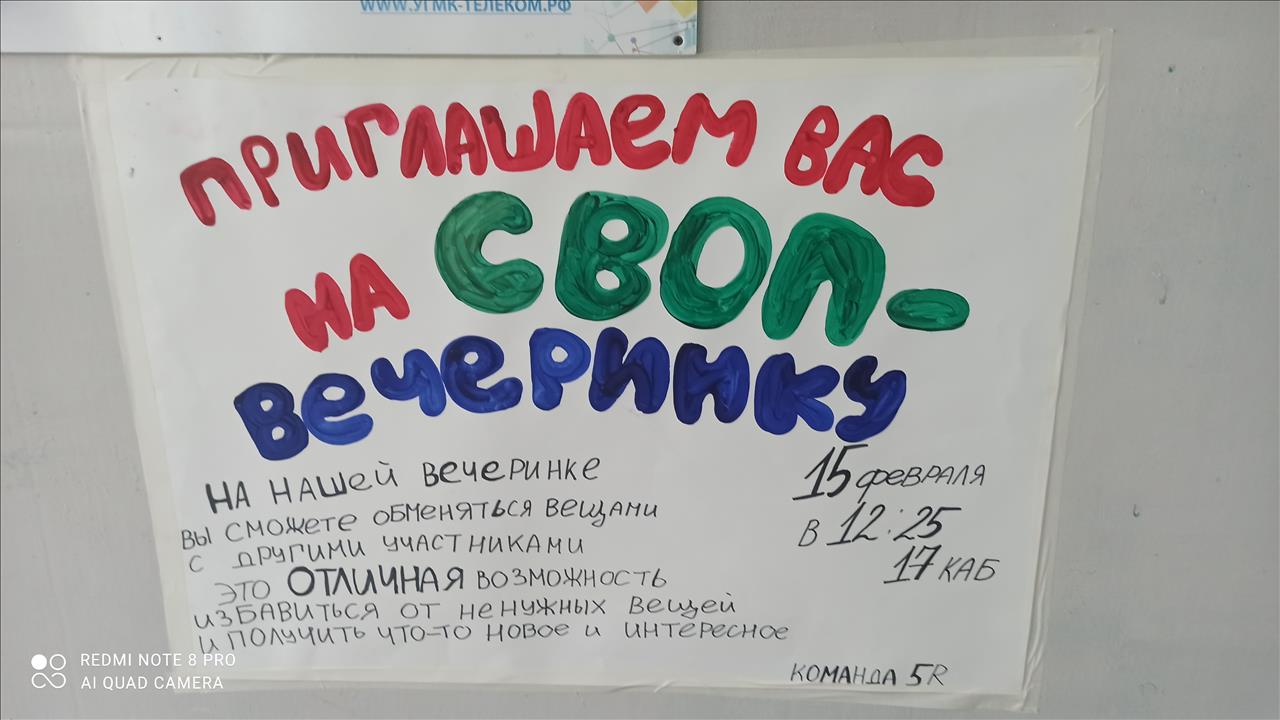 WWW.УГМК-ТЕЛЕКОМ.РФ
ПРИГЛАШАЕМ ВАС
НА СВОП-
ВЕЧЕРИНКУ
НА НАШЕЙ ВЕЧЕРИНКЕ
ВЫ СМОЖЕТЕ ОБМЕНЯТЬСЯ ВЕЩАМИ
С ДРУГИМИ УЧАСТНИКАМИ
ЭТО ОТЛИЧНАЯ ВОЗМОЖНОСТЬ
ИЗБАВИТЬСЯ ОТ НЕНУЖНЫХ ВЕЩЕЙ
И ПОЛУЧИТЬ ЧТО-ТО НОВОЕ И ИНТЕРЕСНОЕ
15 ФЕВРАЛЯ
В 12:25
17 КАБ
КОМАНДА 5R
REDMI NOTE 8 PRO
AI QUAD CAMERA